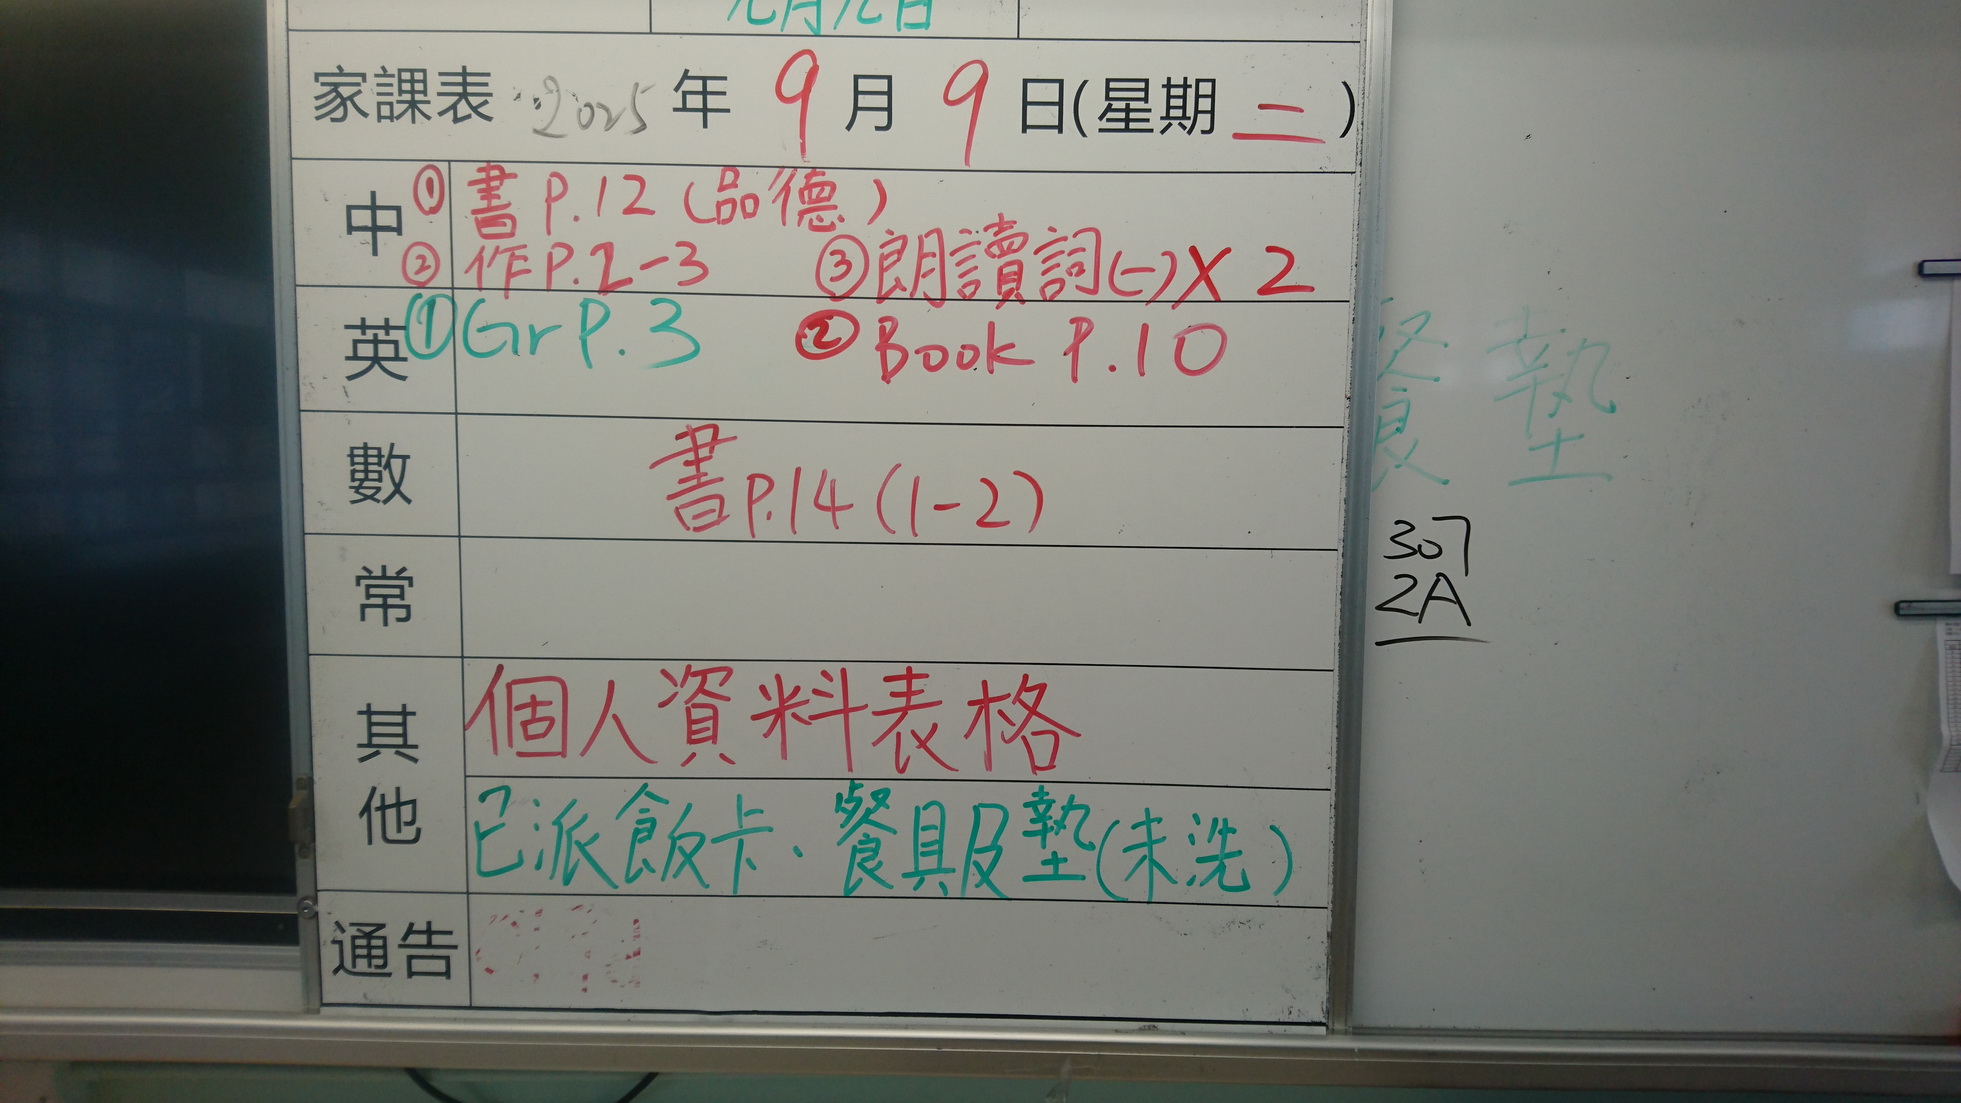 九月九日
家課表 2025 年 9 月 9 日(星期二)
中 ① 書 P.12 (品德)
② 作 P.2-3 ③ 朗讀詞(一) X 2
英 ① Gr P.3 ② Book P.10
數 書 P.14 (1-2)
常
其他 個人資料表格
已派飯卡、餐具及墊(未洗)
通告
餐墊
307
2A